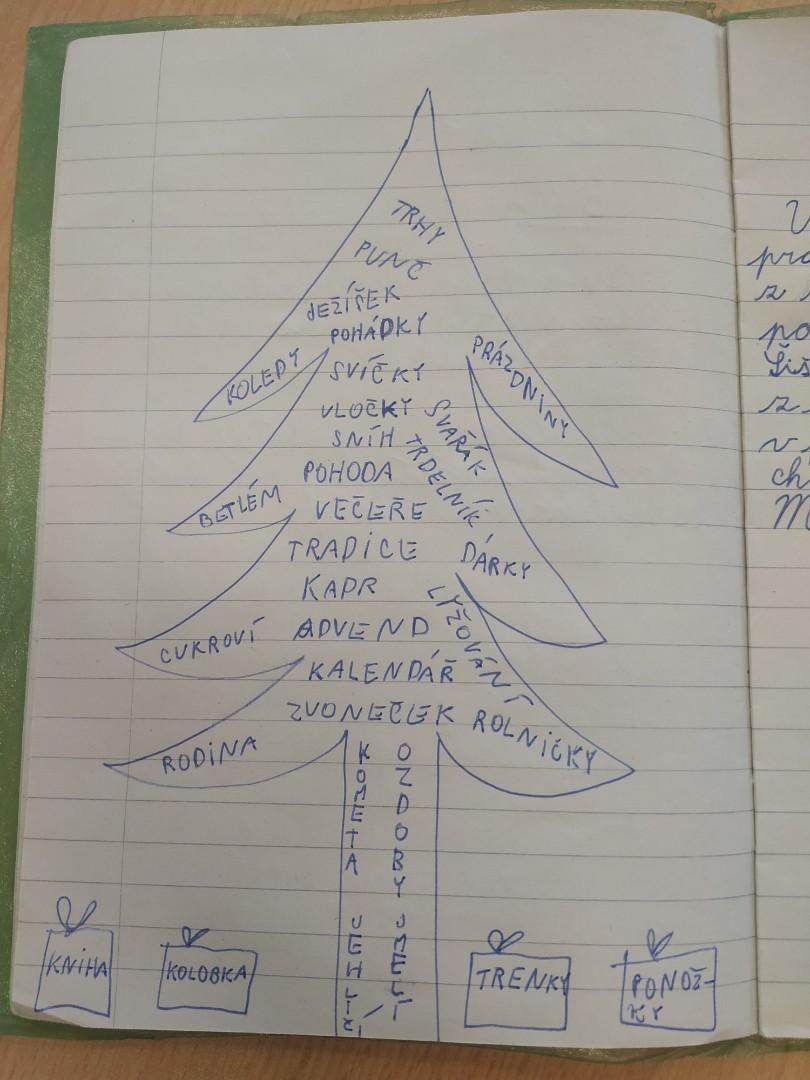 TRHY
PUNČ
JEŽÍŠEK
POHÁDKY
KOLEDY
PRÁZDNINY
SVÍČKY
VLOČKY
SVAŘÁK
SNÍH
TRDELNÍK
POHODA
BETLÉM
VEČEŘE
TRADICE
DÁRKY
KAPR
LYŽOVÁNÍ
CUKROVÍ
ADVEND
KALENDÁŘ
ZVONEČEK
ROLNIČKY
RODINA
KOMETA
OZDOBY
JEHLIČÍ
UMĚLÍ
KNIHA
KOLOBKA
TRENKY
PONOŽ-
KY
pro
po
ch